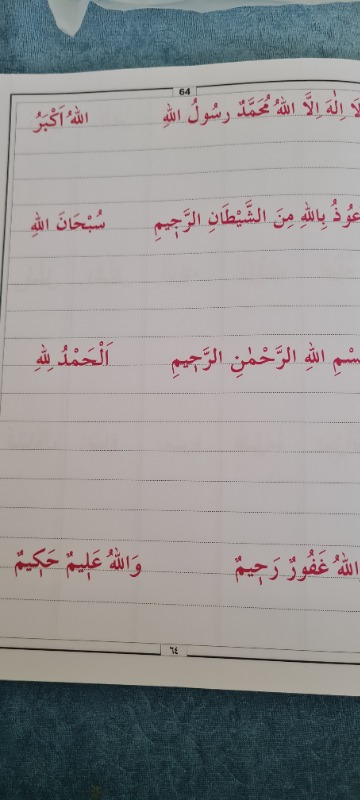 64
لَا اِلٰهَ اِلَّا اللهُ مُحَمَّدٌ رَسُولُ اللهِ اَللهُ اَكْبَرُ
عُوذُ بِاللهِ مِنَ الشَّيْطَانِ الرَّجٖيمِ سُبْحَانَ اللهِ
سْمِ اللهِ الرَّحْمٰنِ الرَّحٖيمِ اَلْحَمْدُ لِلهِ
اللهُ غَفُورٌ رَحٖيمٌ وَاللهُ عَلٖيمٌ حَكٖيمٌ
٦٤